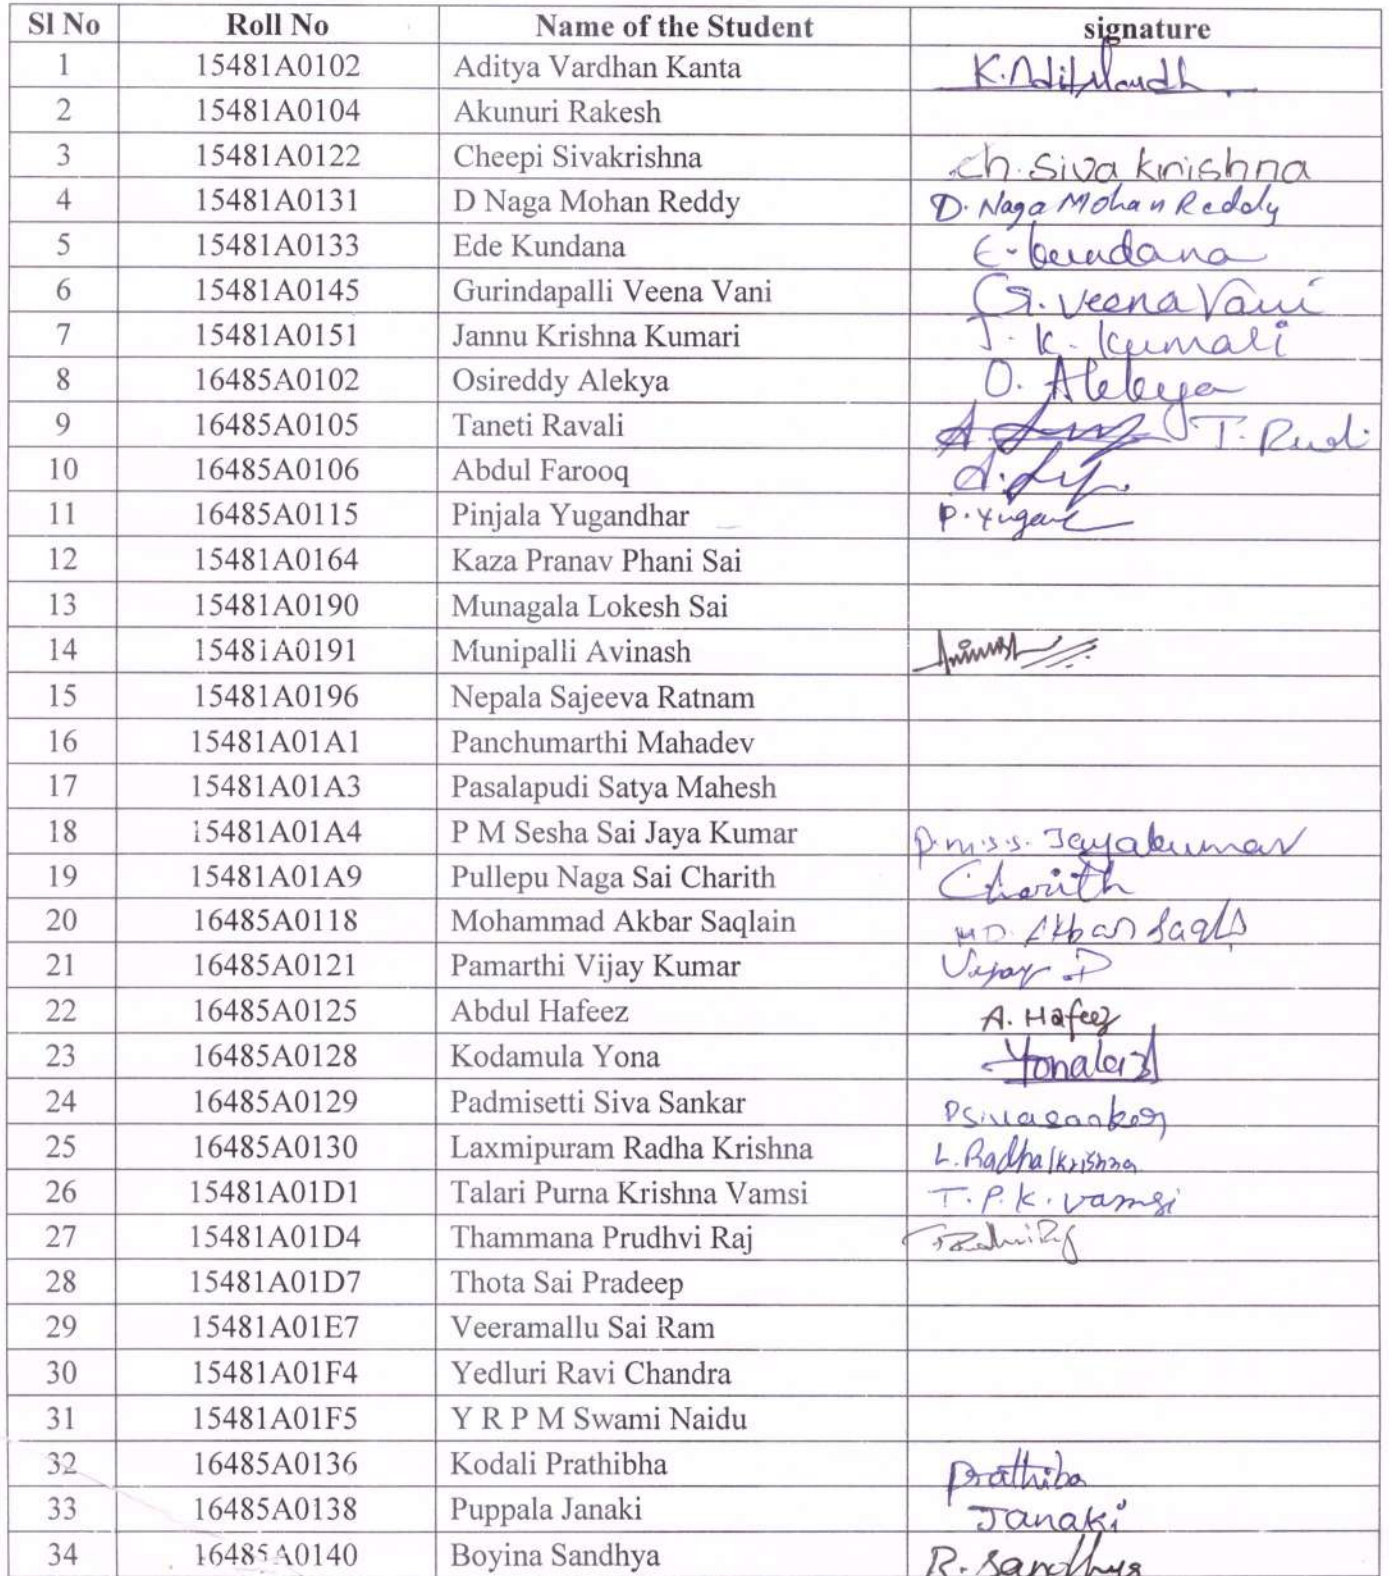 Sl No Roll No Name of the Student signature
1 15481A0102 Aditya Vardhan Kanta
2 15481A0104 Akunuri Rakesh
3 15481A0122 Cheepi Sivakrishna Ch. Siva krishna
4 15481A0131 D Naga Mohan Reddy D. Naga Mohan Reddy
5 15481A0133 Ede Kundana E. kundana
6 15481A0145 Gurindapalli Veena Vani G. Veena Vani
7 15481A0151 Jannu Krishna Kumari J. K. Kumari
8 16485A0102 Osireddy Alekya O. Alekya
9 16485A0105 Taneti Ravali
10 16485A0106 Abdul Farooq
11 16485A0115 Pinjala Yugandhar
12 15481A0164 Kaza Pranav Phani Sai
13 15481A0190 Munagala Lokesh Sai
14 15481A0191 Munipalli Avinash
15 15481A0196 Nepala Sajeeva Ratnam
16 15481A01A1 Panchumarthi Mahadev
17 15481A01A3 Pasalapudi Satya Mahesh
18 15481A01A4 P M Sesha Sai Jaya Kumar P.M.S.S. Jayakumar
19 15481A01A9 Pullepu Naga Sai Charith Charith
20 16485A0118 Mohammad Akbar Saqlain MD. Akbar
21 16485A0121 Pamarthi Vijay Kumar Vijay P
22 16485A0125 Abdul Hafeez A. Hafeez
23 16485A0128 Kodamula Yona
24 16485A0129 Padmisetti Siva Sankar P Sivasankar
25 16485A0130 Laxmipuram Radha Krishna L. Radha Krishna
26 15481A01D1 Talari Purna Krishna Vamsi T. P. K. Vamsi
27 15481A01D4 Thammana Prudhvi Raj
28 15481A01D7 Thota Sai Pradeep
29 15481A01E7 Veeramallu Sai Ram
30 15481A01F4 Yedluri Ravi Chandra
31 15481A01F5 Y R P M Swami Naidu
32 16485A0136 Kodali Prathibha Prathiba
33 16485A0138 Puppala Janaki Janaki
34 16485A0140 Boyina Sandhya B. Sandhya